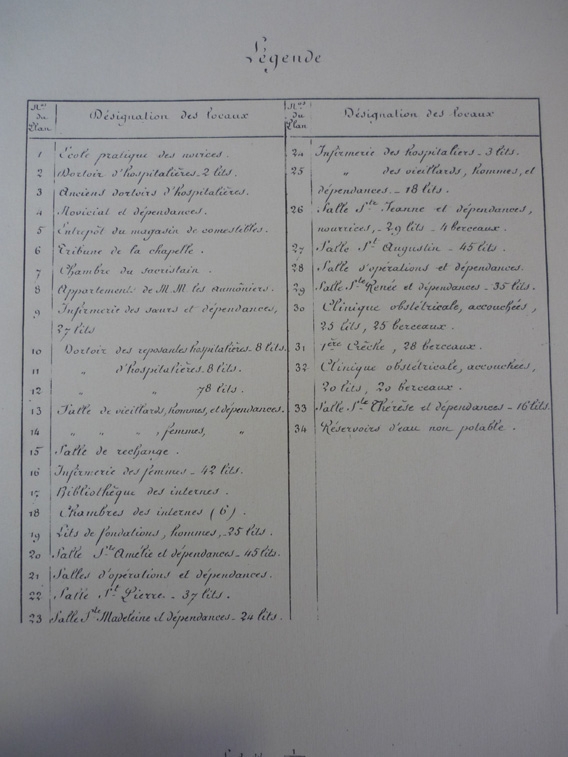 Légende
Nos du Plan
Désignation des locaux
1 École pratique des novices.
2 Dortoir d'hospitalières_2 lits.
3 Anciens dortoirs d'hospitalières.
4 Noviciat et dépendances.
5 Entrepôt du magasin de comestibles.
6 Tribune de la chapelle.
7 Chambre du sacristain.
8 Appartements de M.M. les aumôniers.
9 Infirmerie des sœurs et dépendances,
27 lits
10 Dortoir des reposantes hospitalières. 8 lits.
11 " d'hospitalières. 8 lits.
12 " " 78 lits.
13 Salle de vieillards, hommes, et dépendances.
14 " " " , femmes, "
15 Salle de rechange.
16 Infirmerie des femmes_42 lits.
17 Bibliothèque des internes.
18 Chambres des internes (6).
19 Lits de fondations, hommes,_25 lits.
20 Salle Ste Amélie et dépendances_45 lits.
21 Salles d'opérations et dépendances.
22 Salle St Pierre_37 lits.
23 Salle Ste Madeleine et dépendances_24 lits.
Nos du Plan
Désignation des locaux
24 Infirmerie des hospitaliers_3 lits.
25 " des vieillards, hommes, et
dépendances_18 lits.
26 Salle Ste Jeanne et dépendances,
nourrices,_29 lits_4 berceaux.
27 Salle St Augustin_45 lits.
28 Salle d'opérations et dépendances.
29 Salle Ste Renée et dépendances_35 lits.
30 Clinique obstétricale, accouchées,
25 lits, 25 berceaux.
31 1ère Crèche, 28 berceaux.
32 Clinique obstétricale, accouchées,
20 lits, 20 berceaux.
33 Salle Ste Thérèse et dépendances_16 lits.
34 Réservoirs d'eau non potable.